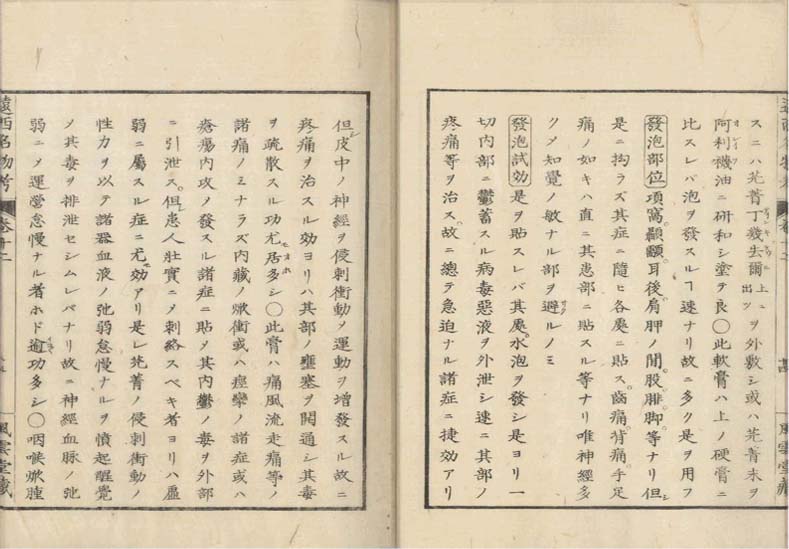 スニハ芫菁丁幾去爾上ニ出ツヲ外敷シ或ハ芫菁末ヲ
阿利襪油ニ研和シ塗テ良〇此軟膏ハ上ノ硬膏ニ
比スレバ泡ヲ發スルヿ速ナリ故ニ多ク是ヲ用フ
發泡部位 項窩。顳顬。耳後。肩胛ノ間。股。腓。脚。等ナリ但シ
是ニ拘ラズ其症ニ隨ヒ各處ニ貼ス。齒痛。背痛。手足
痛ノ如キハ直ニ其患部ニ貼スル等ナリ唯神經多
クメ知覺ノ敏ナル部ヲ避ルノミ
發泡試効 是ヲ貼スレバ其處水泡ヲ發シ是ヨリ一
切内部ニ鬱蓄スル病毒惡液ヲ外泄シ速ニ其部ノ
疼痛等ヲ治ス。故ニ總テ急迫ナル諸症ニ捷効アリ
遠西名物考 卷十二
風雲堂藏
但シ皮中ノ神經ヲ侵刺衝動メ運動ヲ增發スル故ニ
疼痛ヲ治スル効ヨリハ其部ノ壅塞ヲ開通シ其毒
ヲ疏散スル功尤居多シ〇此膏ハ痛風流走痛等ノ
諸痛ノミナラズ内藏ノ焮衝或ハ痙攣ノ諸症或ハ
瘡瘍内攻メ發スル諸症ニ貼メ其内鬱ノ毒ヲ外部
ニ引泄ス。但患人壯實ニメ刺絡スベキ者ヨリハ虛
弱ニ屬スル症ニ尤効アリ是レ芫菁ノ侵刺衝動ノ
性力ヲ以テ諸器血液ノ弛弱怠慢ナルヲ憤起醒覺
メ其毒ヲ排泄セシムレバナリ故ニ神經血脉ノ弛
弱ニメ運營怠慢ナル者ホド逾功多シ〇咽喉焮腫